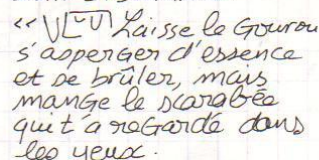 « Laisse le Gourou
s'asperger d'essence
et se brûler, mais
mange le scarabée
qui t'a regardé dans
les yeux.